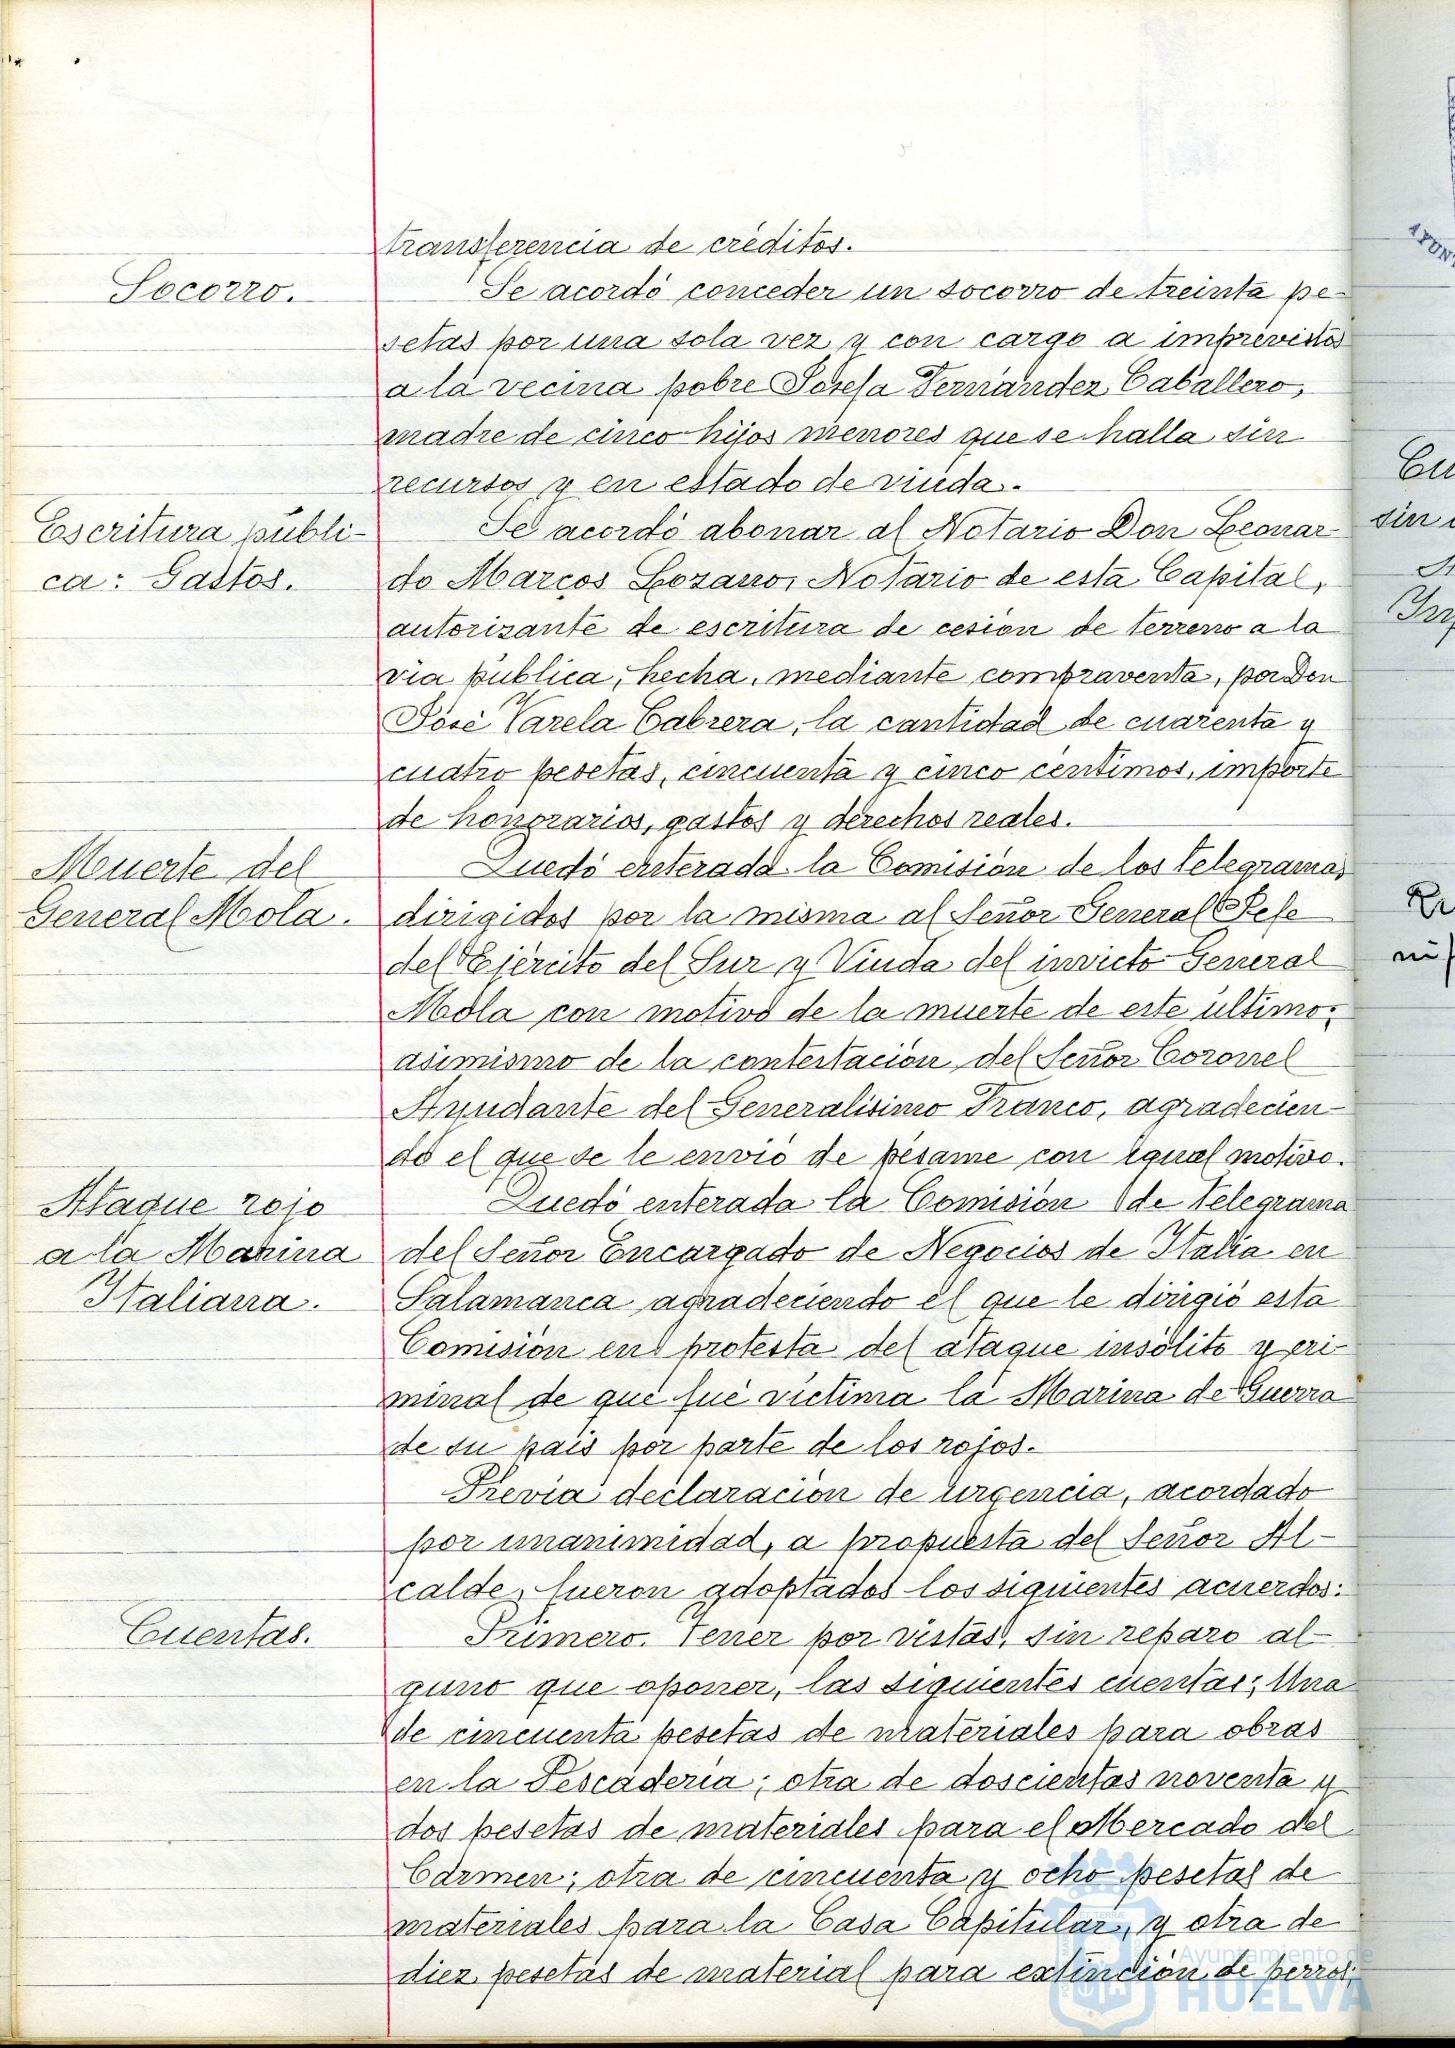 transferencia de créditos.
Socorro.
Se acordó conceder un socorro de treinta pe-
setas por una sola vez y con cargo a imprevistos
a la vecina pobre Josefa Fernández Caballero,
madre de cinco hijos menores que se halla sin
recursos y en estado de viuda.
Escritura públi-
ca: Gastos.
Se acordó abonar al Notario Don Leonar-
do Marcos Lozano, Notario de esta Capital,
autorizante de escritura de cesión de terreno a la
vía pública, hecha, mediante compraventa, por Don
José Varela Cabrera, la cantidad de cuarenta y
cuatro pesetas, cincuenta y cinco céntimos, importe
de honorarios, gastos y derechos reales.
Muerte del
General Mola.
Quedó enterada la Comisión de los telegramas
dirigidos por la misma al Señor General Jefe
del Ejército del Sur y Viuda del invicto General
Mola con motivo de la muerte de este último;
asimismo de la contestación del Señor Coronel
Ayudante del Generalísimo Franco, agradecien-
do el que se le envió de pésame con igual motivo.
Ataque rojo
a la Marina
Italiana.
Quedó enterada la Comisión de telegrama
del Señor Encargado de Negocios de Italia en
Salamanca agradeciendo el que le dirigió esta
Comisión en protesta del ataque insólito y cri-
minal de que fué víctima la Marina de Guerra
de su país por parte de los rojos.
Previa declaración de urgencia, acordado
por unanimidad, a propuesta del Señor Al-
calde, fueron adoptados los siguientes acuerdos:
Cuentas.
Primero. Tener por vistas, sin reparo al-
guno que oponer, las siguientes cuentas; Una
de cincuenta pesetas de materiales para obras
en la Pescadería; otra de doscientas noventa y
dos pesetas de materiales para el Mercado del
Carmen; otra de cincuenta y ocho pesetas de
materiales para la Casa Capitular, y otra de
diez pesetas de material para extinción de perros;
Ayuntamiento de
HUELVA
AYUN
sin